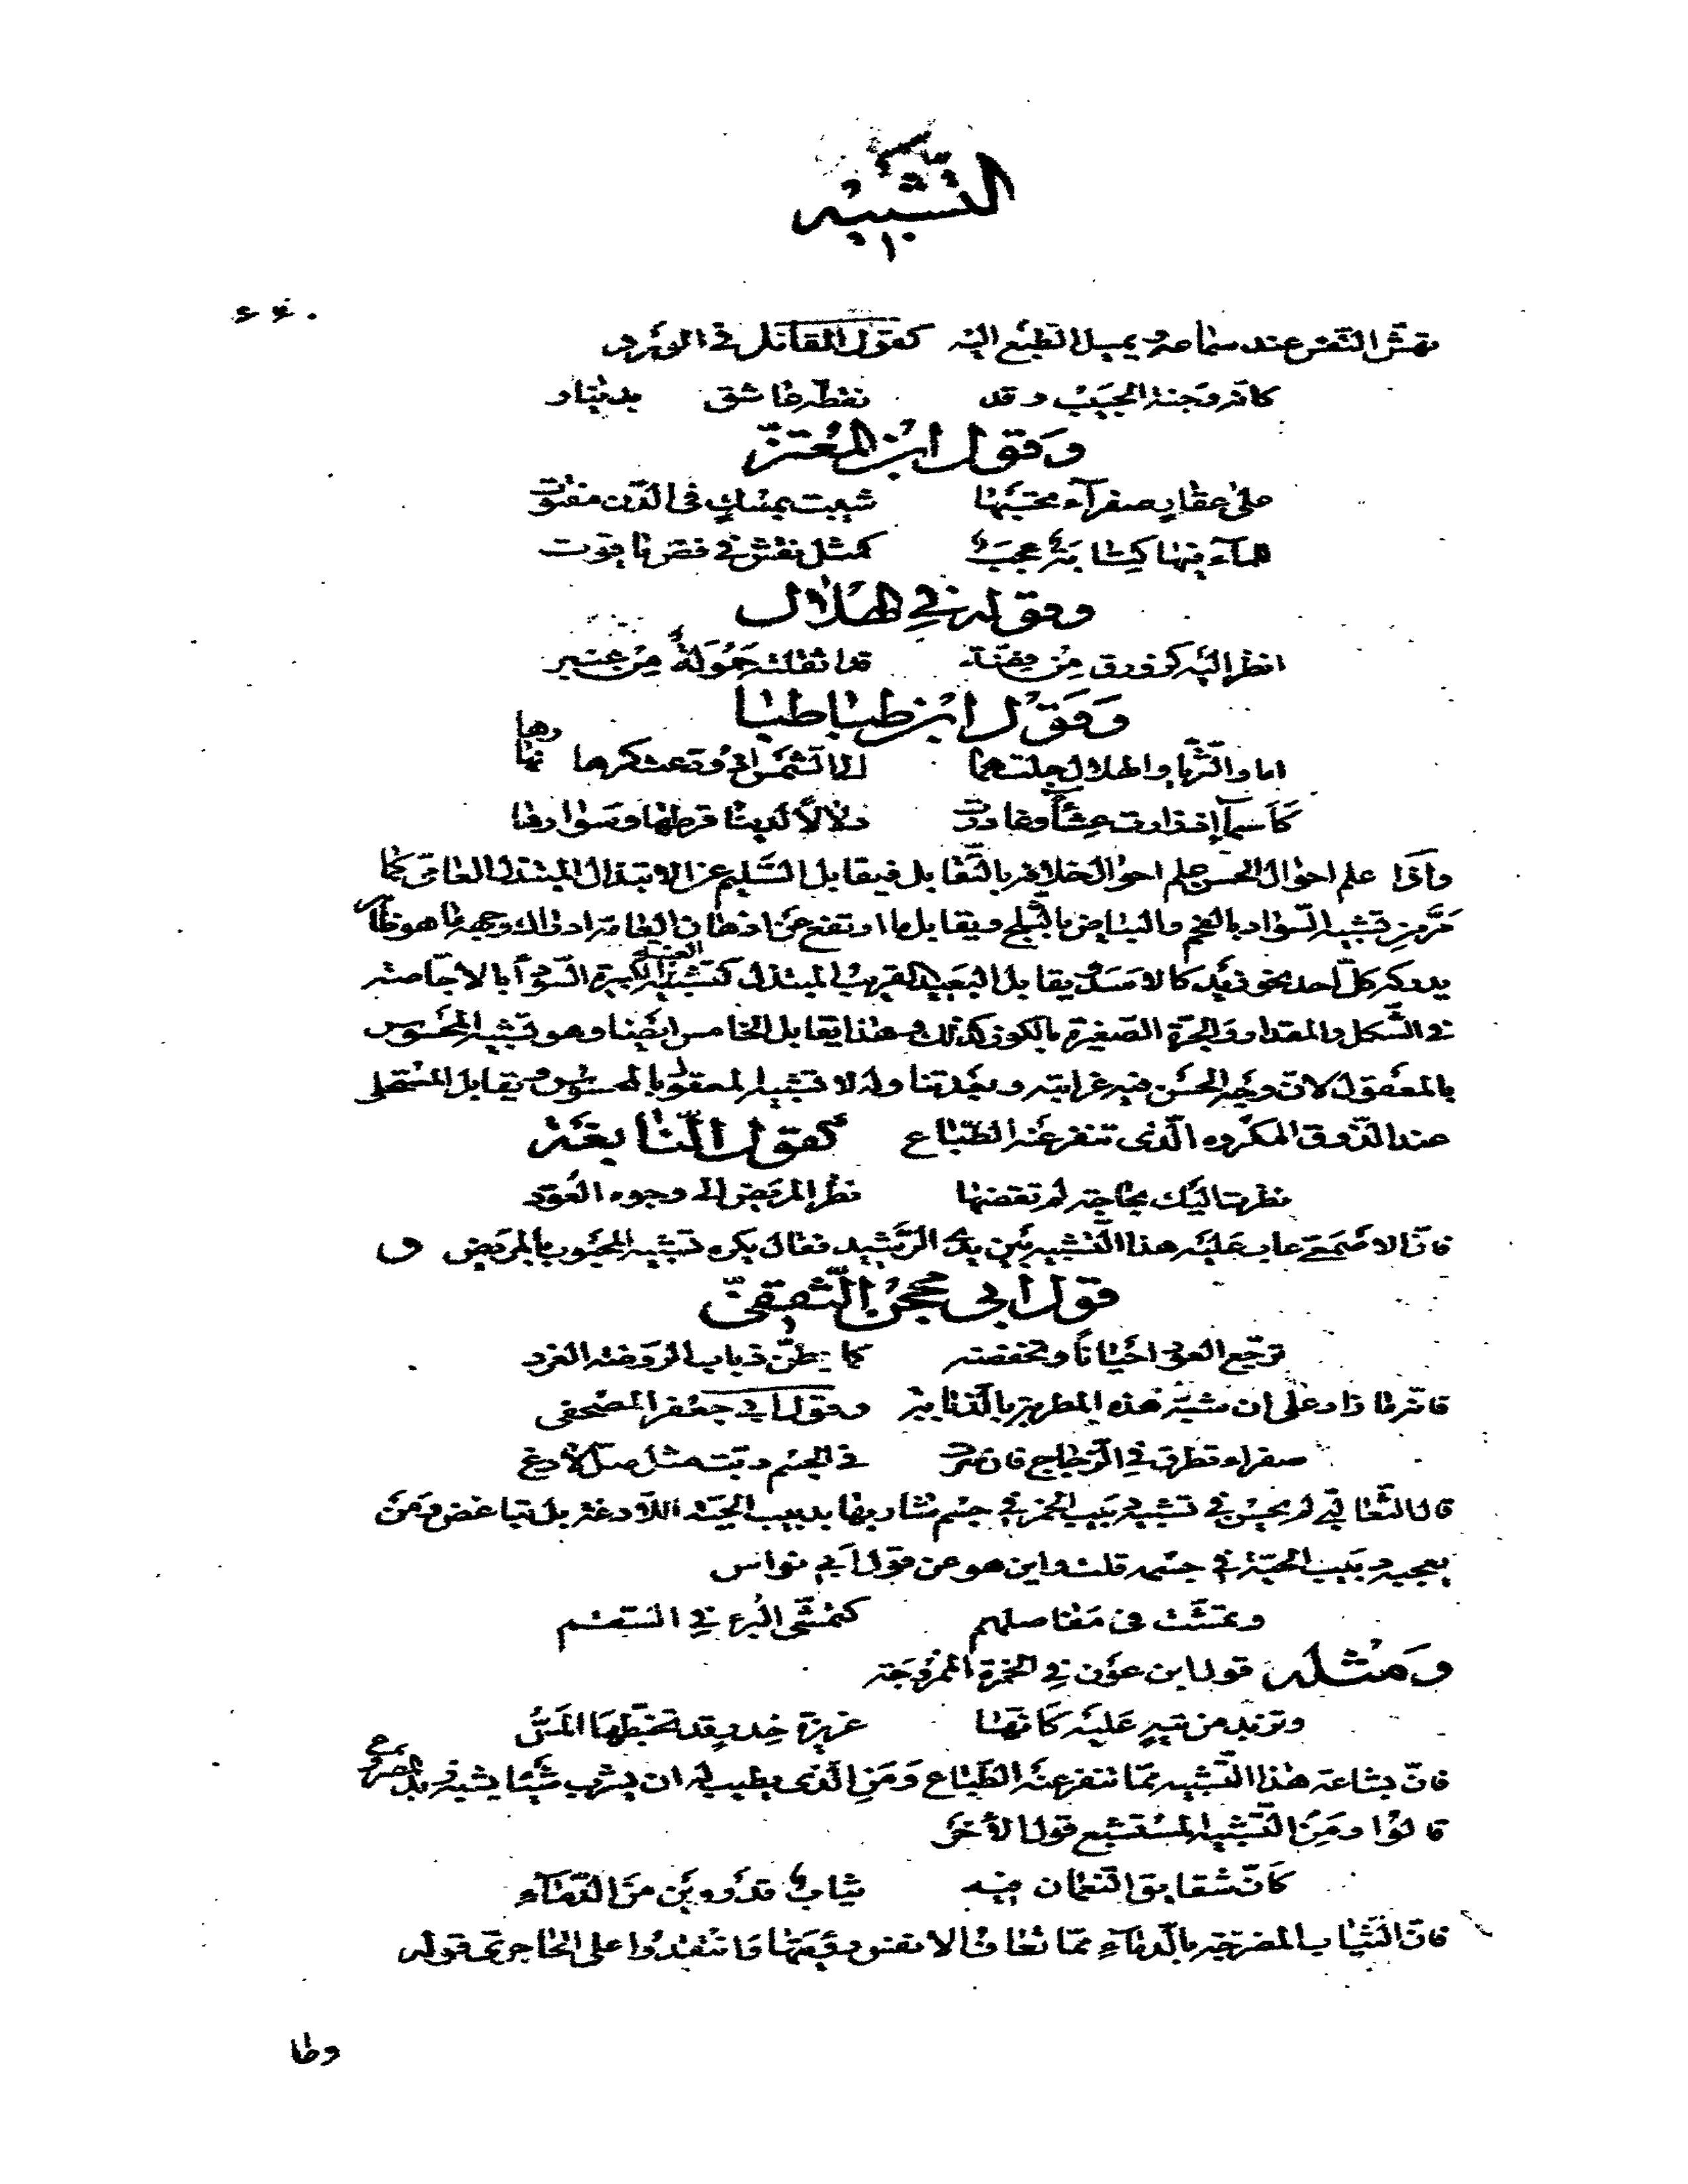 التشبيه
تهش النفس عند سماعه ويميل الطبع اليه كقول القائل في الورد
كانه وجنة الحبيب وقد نقطه عاشق بدينار
وقول ابن المعتز
على عقار صفرآء تحسبها شيبت بمسك في الدن مفتوت
للمآء فيها كتابة عجب كمثل نقش في فص ياقوت
وقوله في الهلال
انظر اليه كزورق من فضة قد اثقلته حمولة من عنبر
وقول ابن طباطبا
اما والثريا والهلال جلتهما لي الشمس اذ ودعت كرها نهارها
كاسمآ اذ زارت عشآ وغادرت دلالا لدينا قرطها وسوارها
واذا علم احوال الحسن علم احوال خلافه بالتقابل فيقابل السليم عن الابتذال المبتذل العامي كما
مر من تشبيه السواد بالفحم والبياض بالثلج ويقابل ما ارتفع عن اذهان العامة ادراك وجهه ما هو ظاهر
يدركه كل احد نحو زيد كالاسد ويقابل البعيد القريب المبتذل كتشبيه العنبة الكبيرة السودآ بالاجاصة
في الشكل والمقدار والجرة الصغيرة بالكوز كذلك وهذا يقابل الخامس ايضا وهو تشبيه المحسوس
بالمعقول لان وجه الحسن فيه غرابته وبعدتنا وله لا تشبيه المعقول بالمحسوس ويقابل المستحلى
عند الذوق المكروه الذي تنفر عنه الطباع كقول النابغة
نظرت اليك بحاجة لم تقضها نظر المريض الى وجوه العود
فان الاصمعي عاب عليه هذا التشبيه بين يدي الرشيد فقال يكره تشبيه المحبوب بالمريض و
قول ابي محجن الثقفي
ترجع العود احيانا وتخفضه كما يطن ذباب الروضة الغرد
فانه ما زاد على ان شبه هذه المطربة بالذبابة وقول ابي جعفر المصحفي
صفراء تطرق في الزجاج فان سرت في الجسم دبت مثل صل لادغ
قال الثعالبي لم يحسن في تشبيه دبيب الخمر في جسم شاربها بدبيب الحية اللادغة بل تباغض ومن
يعجبه دبيب الحية في جسمه قلت واين هو عن قول ابي نواس
وتمشت في مفاصلهم كتمشي البرء في السقم
ومثله قول ابن عون في الخمرة الممزوجة
وتزبد من تيه عليه كانها عزيزة خدر قد تخبطها المس
فان بشاعة هذا التشبيه مما تنفر عنه الطباع ومن الذي يطيب له ان يشرب شيئا يشبه زبد المصروع
قالوا ومن التشبيه المستبشع قول الآخر
كان شقايق النعمان فيه ثياب قد روين من الدمآء
فان الثياب المضرجة بالدمآء مما تعاف الانفس رؤيتها وانتقدوا على الحاجري قوله
وما